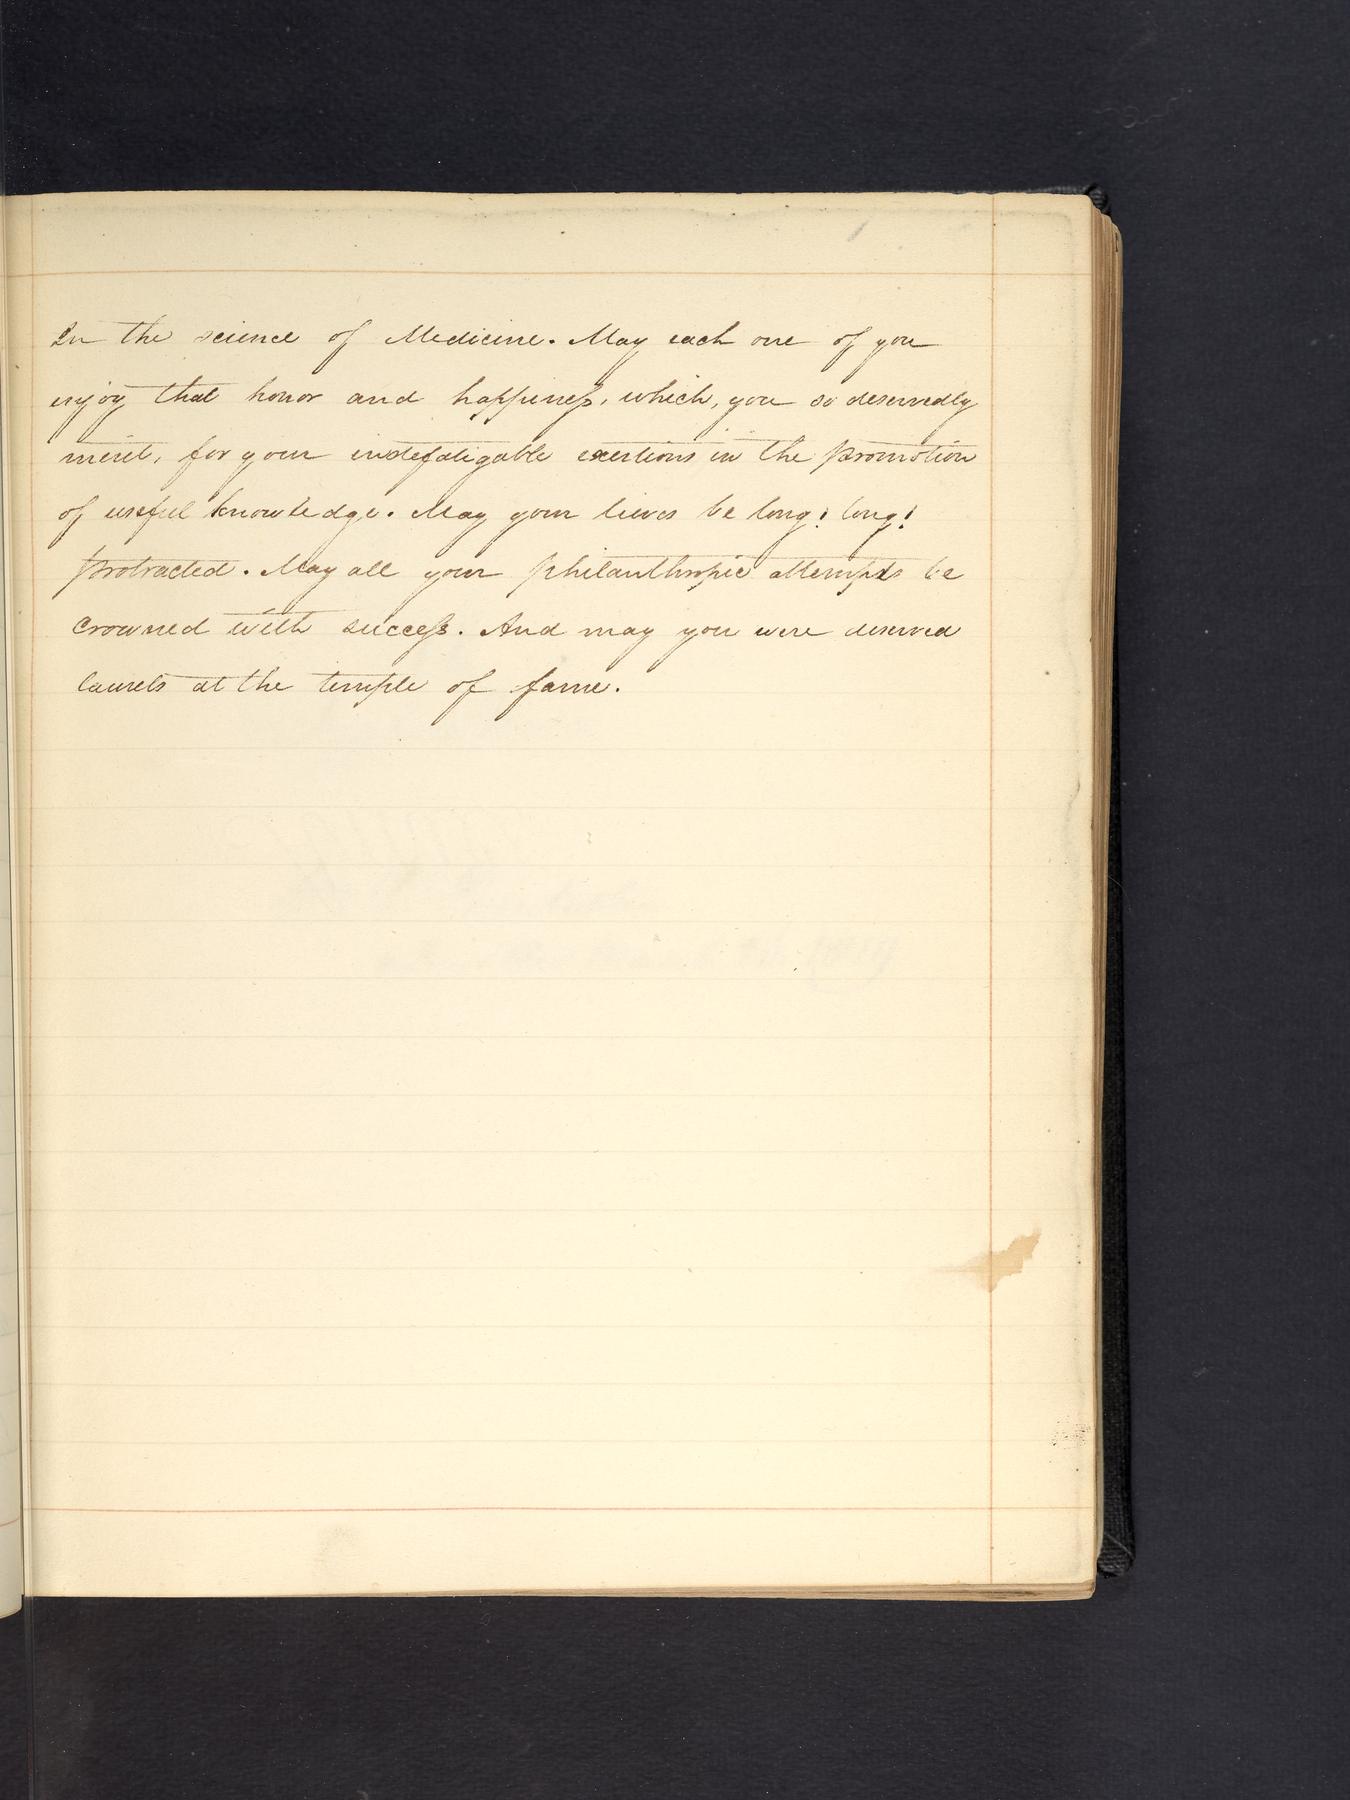 In the science of Medicine. May each one of you
enjoy that honor and happiness, which, you so deservedly
merit, for your indefatigable exertions in the promotion
of useful knowledge. May your lieves be long! long!
protracted. May all your philanthropic attempts be
crowned with success. And may you were deserved
laurels at the temple of fame.